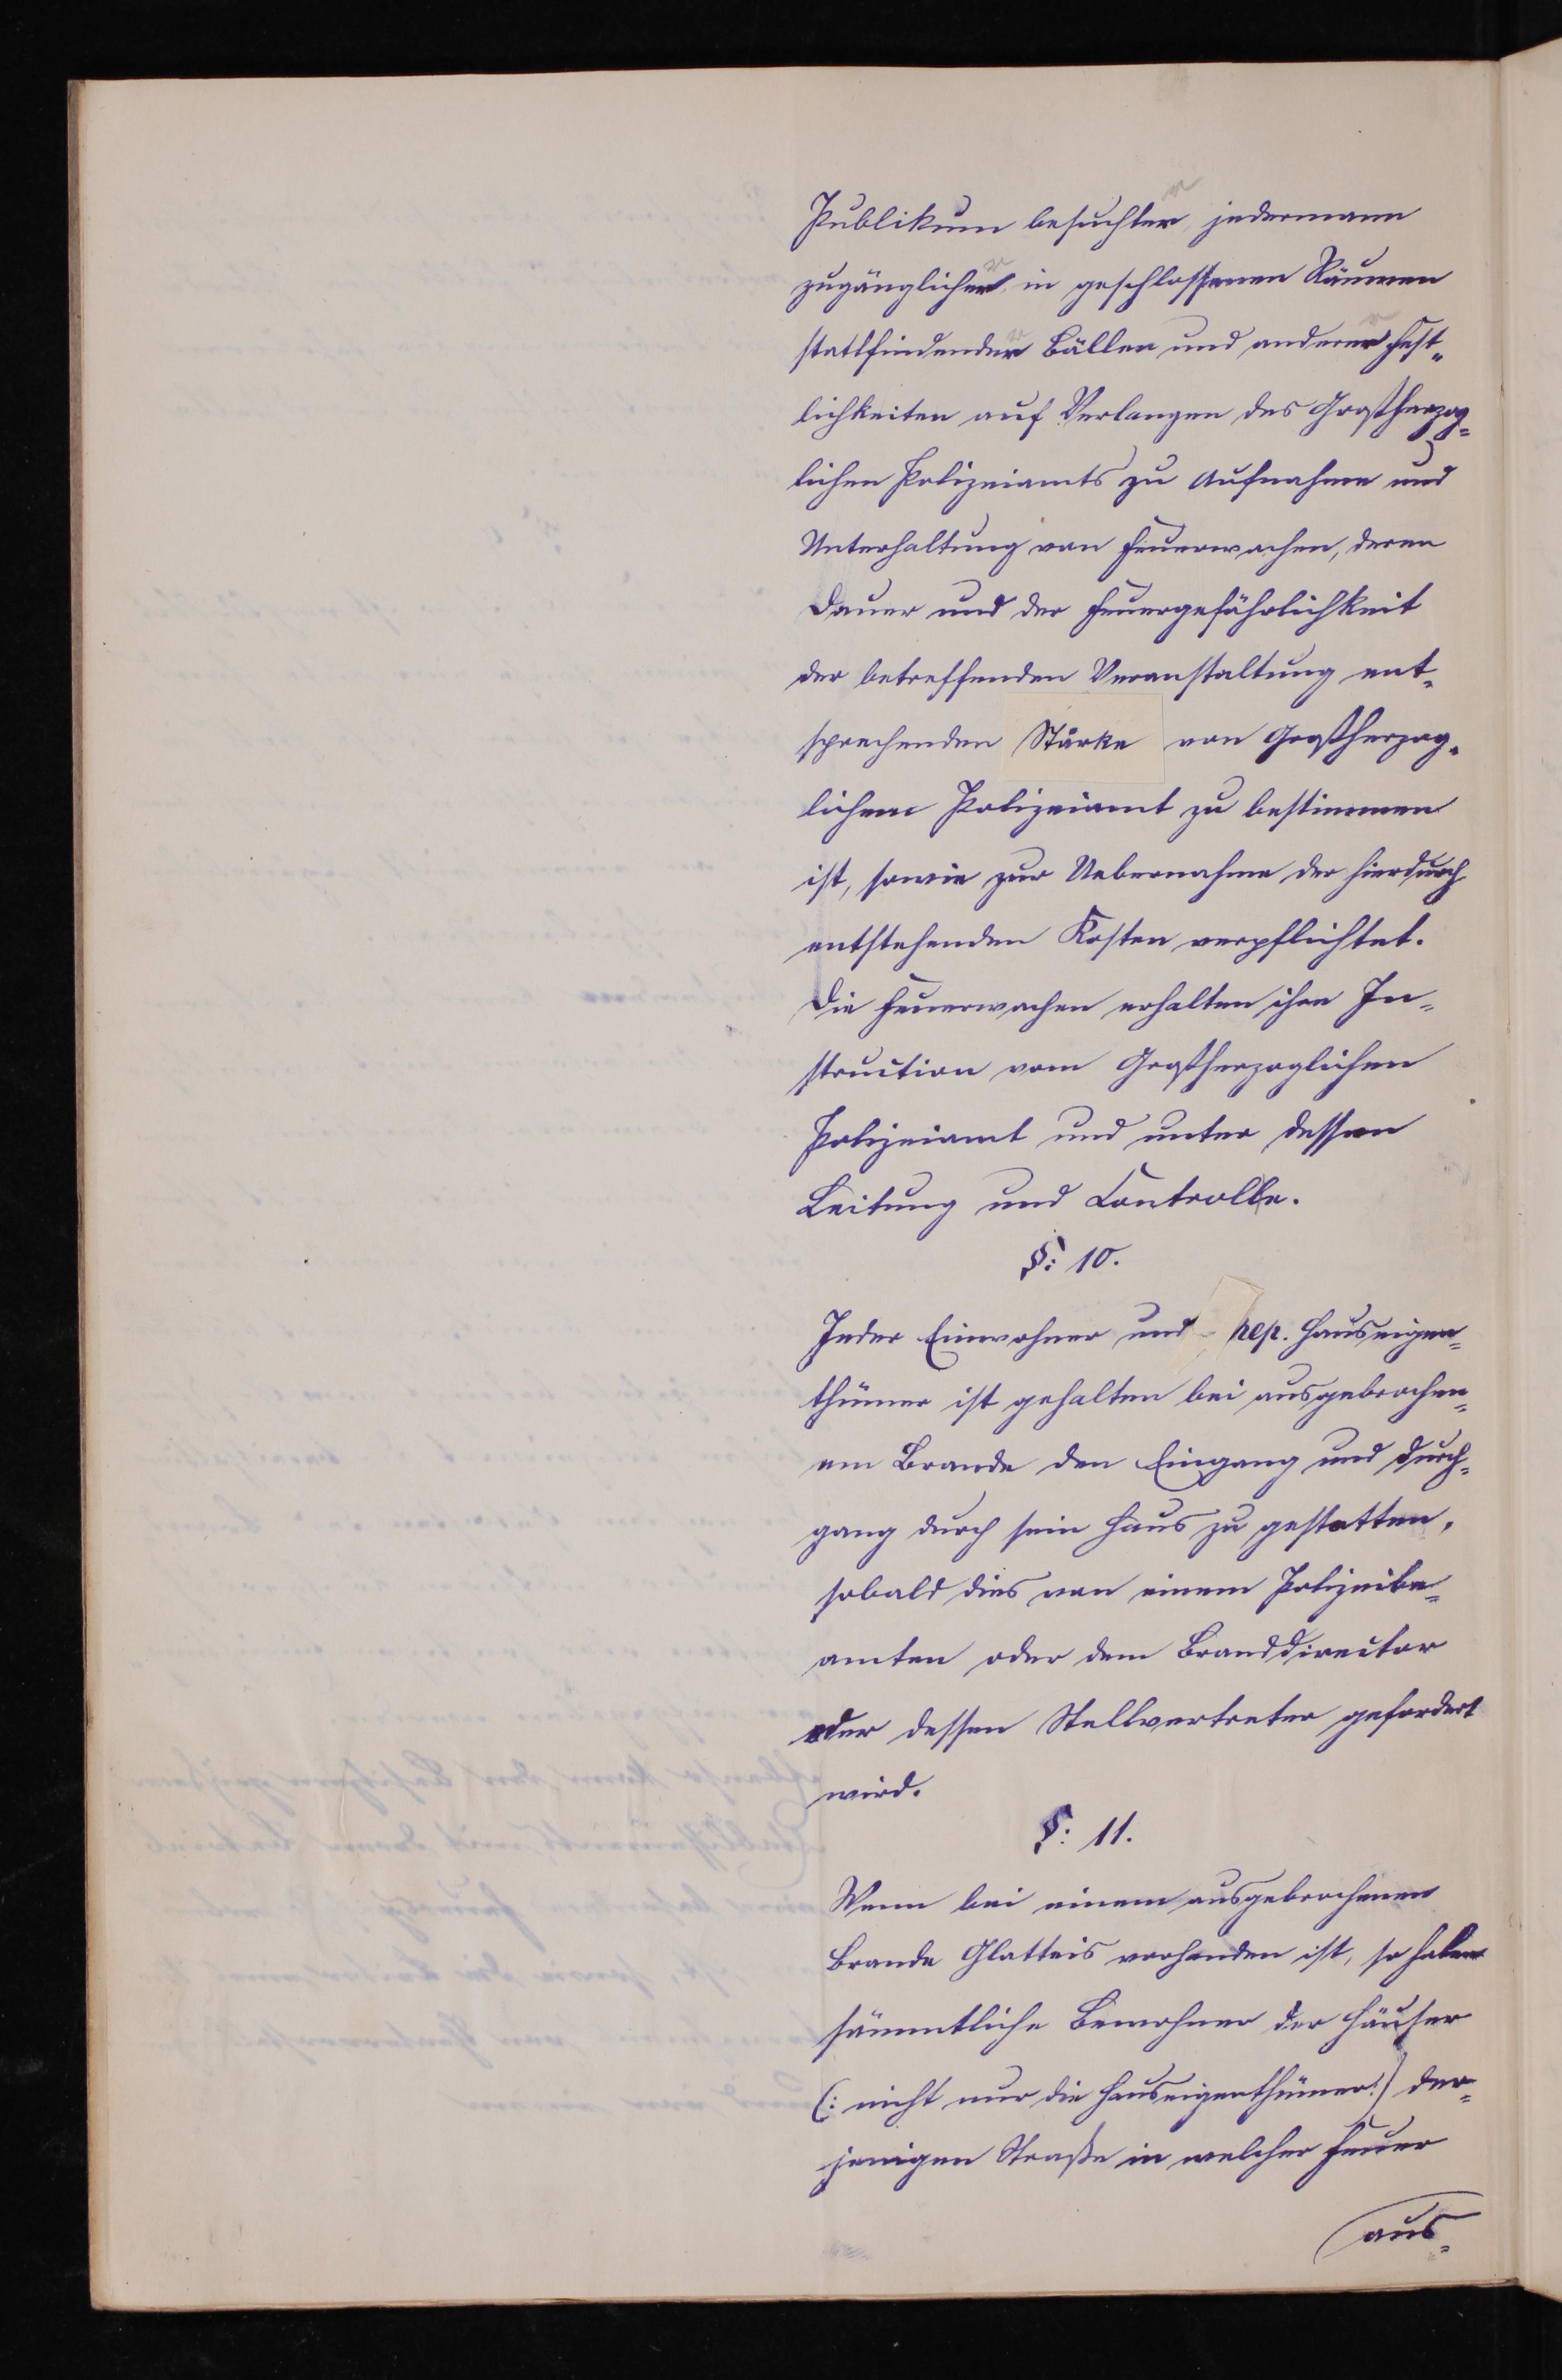 Publikum besuchter, jedermann
zugänglicher, in geschlossenen Räumen
stattfindender Bällen und anderer Fest„
lichkeiten auf Verlangen des Großherzog„
lichen Polizeiamts zu Aufnahme und
Unterhaltung von Feuerwachen, deren
Dauer und der Feuergefährlichkeit
der betreffenden Veranstaltung ent„
sprechenden Stärke von Großherzog„
lichem Polizeiamt zu bestimmen
ist, sowie zur Uebernahme der hierdurch
entstehenden Kosten verpflichtet.
Die Feuerwachen erhalten ihre In„
struction vom Großherzoglichen
Polizeiamt und unter dessen
Leitung und Controlle.
§: 10.
Jeder Einwohner und resp. Hauseigen„
thümer ist gehalten bei ausgebrochen„
em Brande den Eingang und Durch„
gang durch sein Haus zu gestatten,
sobald dies von einem Polizeibe„
amten oder dem Branddirector
oder dessen Stellvertreter gefordert
wird.
§: 11.
Wenn bei einem ausgebrochenen
Brande Glatteis vorhanden ist, so haben
sämmtliche Bewohner der Häuser
(: nicht nur die Hauseigenthümer:) der„
jenigen Straße in welcher Feuer
aus„